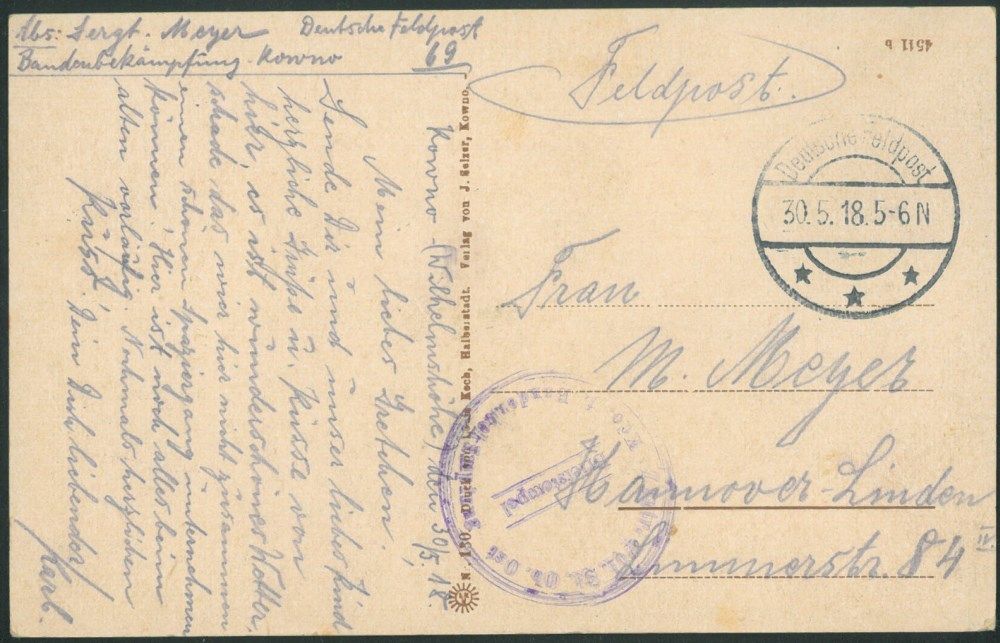 Abs: Sergt. Meyer Deutsche Feldpost
Bandenbekämpfung Kowno 69
Kowno (Wilhelmshöhe), den 30/5. 18.
Mein liebes Gretchen.
Sende Dir und unser liebes Kind
herzliche Grüße u. Küsse von
hier, es ist wunderschönes Wetter,
schade das wier hier nicht zusammen
einen schönen Spaziergang unternehmen
können. Hier ist noch alles beim
alten vorläufig. Nochmals herzlichen
Kuss! Dein Dich liebender
Karl.
Druck von Louis Koch, Halberstadt. Verlag von J. Selzer, Kowno.
4511 b
Feldpost.
Deutsche Feldpost
30.5.18.5-6N
Frau
M. Meyer
Hannover-Linden
Limmerstr. 84 II
Briefstempel
Ob. Ost